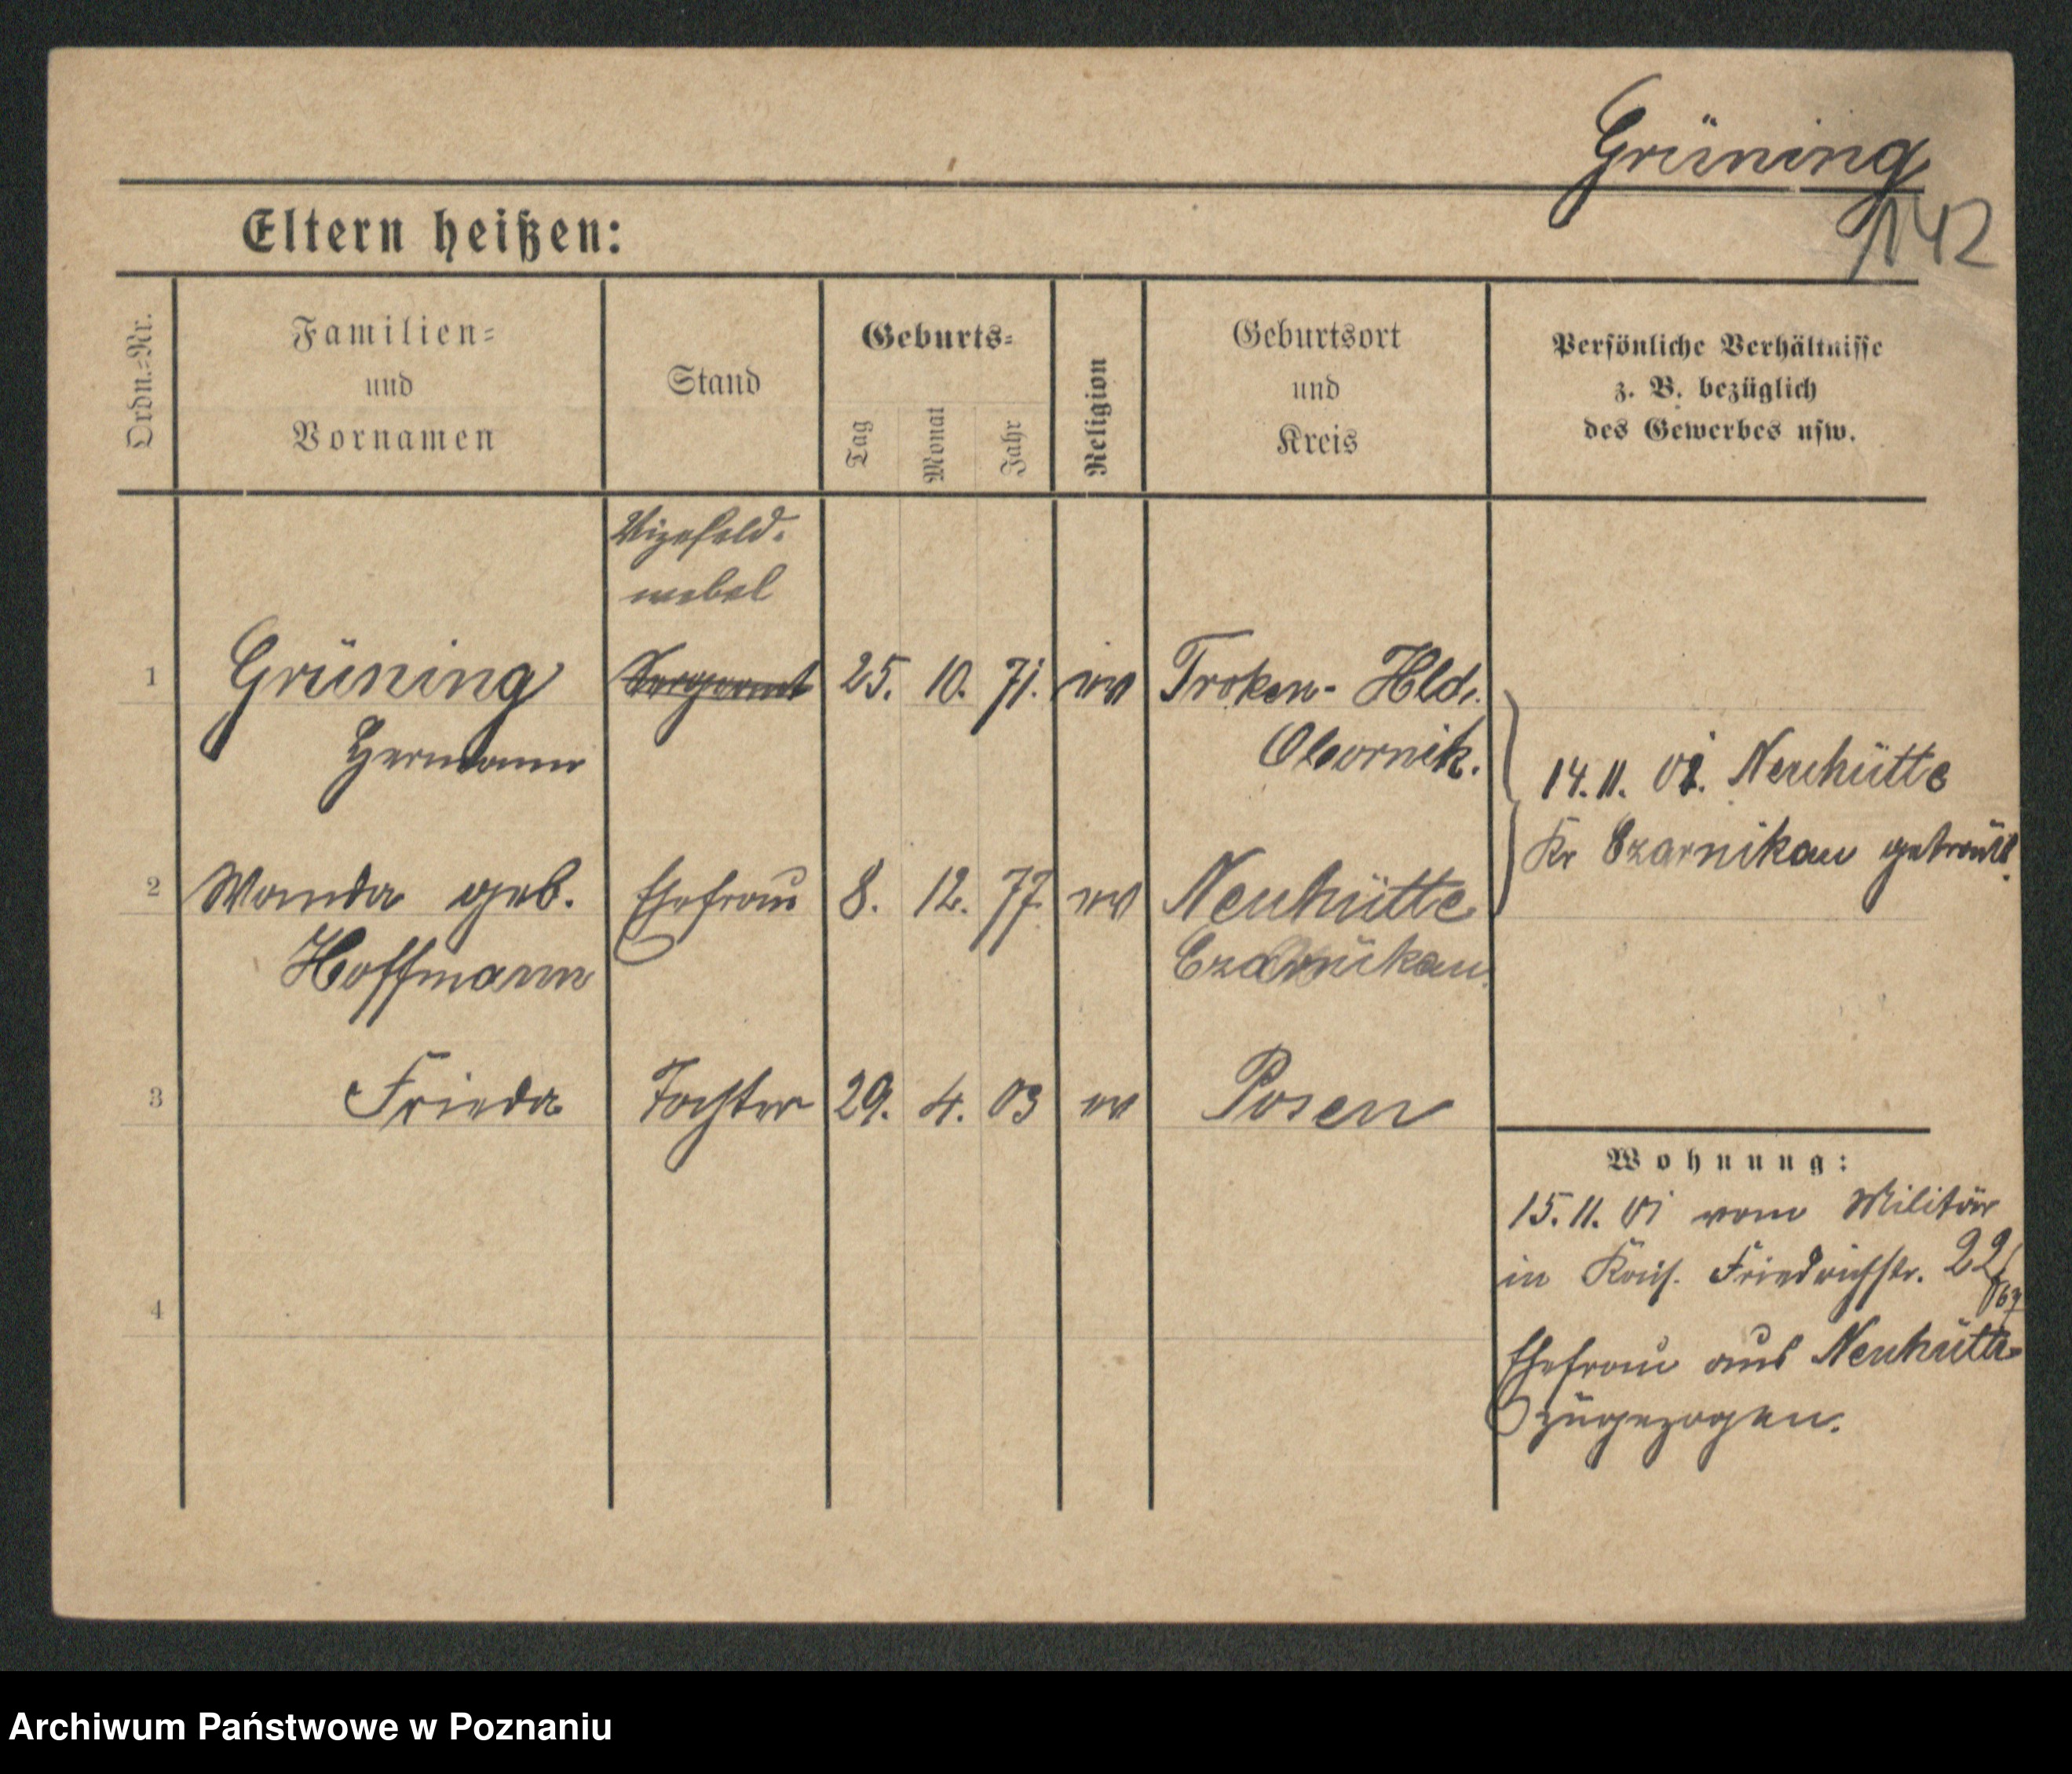 Grüning
142
Eltern heißen:
Ordn.-Nr.
Familien-
und
Vornamen
Stand
Geburts-
Tag
Monat
Jahr
Religion
Geburtsort
und
Kreis
Persönliche Verhältnisse
z. B. bezüglich
des Gewerbes usw.
Vizefeld-
webel
1 Grüning Sergeant 25. 10. 71. ev Troken- Hld.
Hermann Obornik.
14. 11. 01. Neuhütte
Kr Czarnikau getraut.
2 Wanda geb. Ehefrau 8. 12. 77. ev Neuhütte
Hoffmann Czarnikau.
3 Frieda Tochter 29. 4. 03 ev Posen
Wohnung:
15. 11. 01 vom Militär
in Kais. Friedrichstr. 22
4
Ehefrau aus Neuhütte
zugezogen.
Archiwum Państwowe w Poznaniu